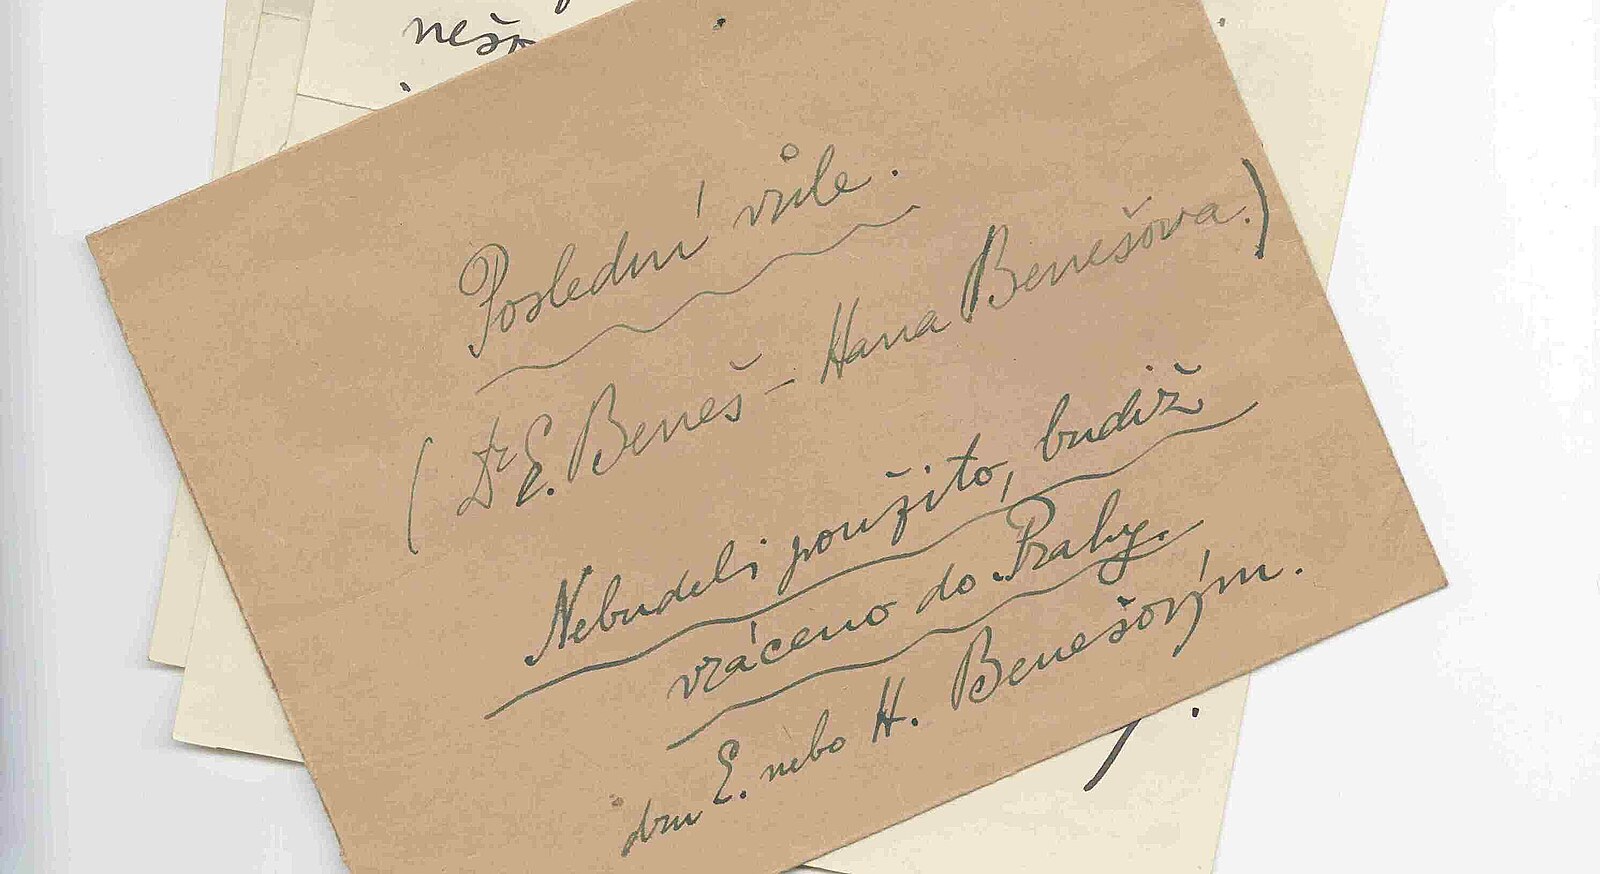 Poslední vůle.
( Dr E. Beneš – Hana Benešova.)
Nebudeli použito, budiž
vráceno do Prahy.
dru E. nebo H. Benešovým.